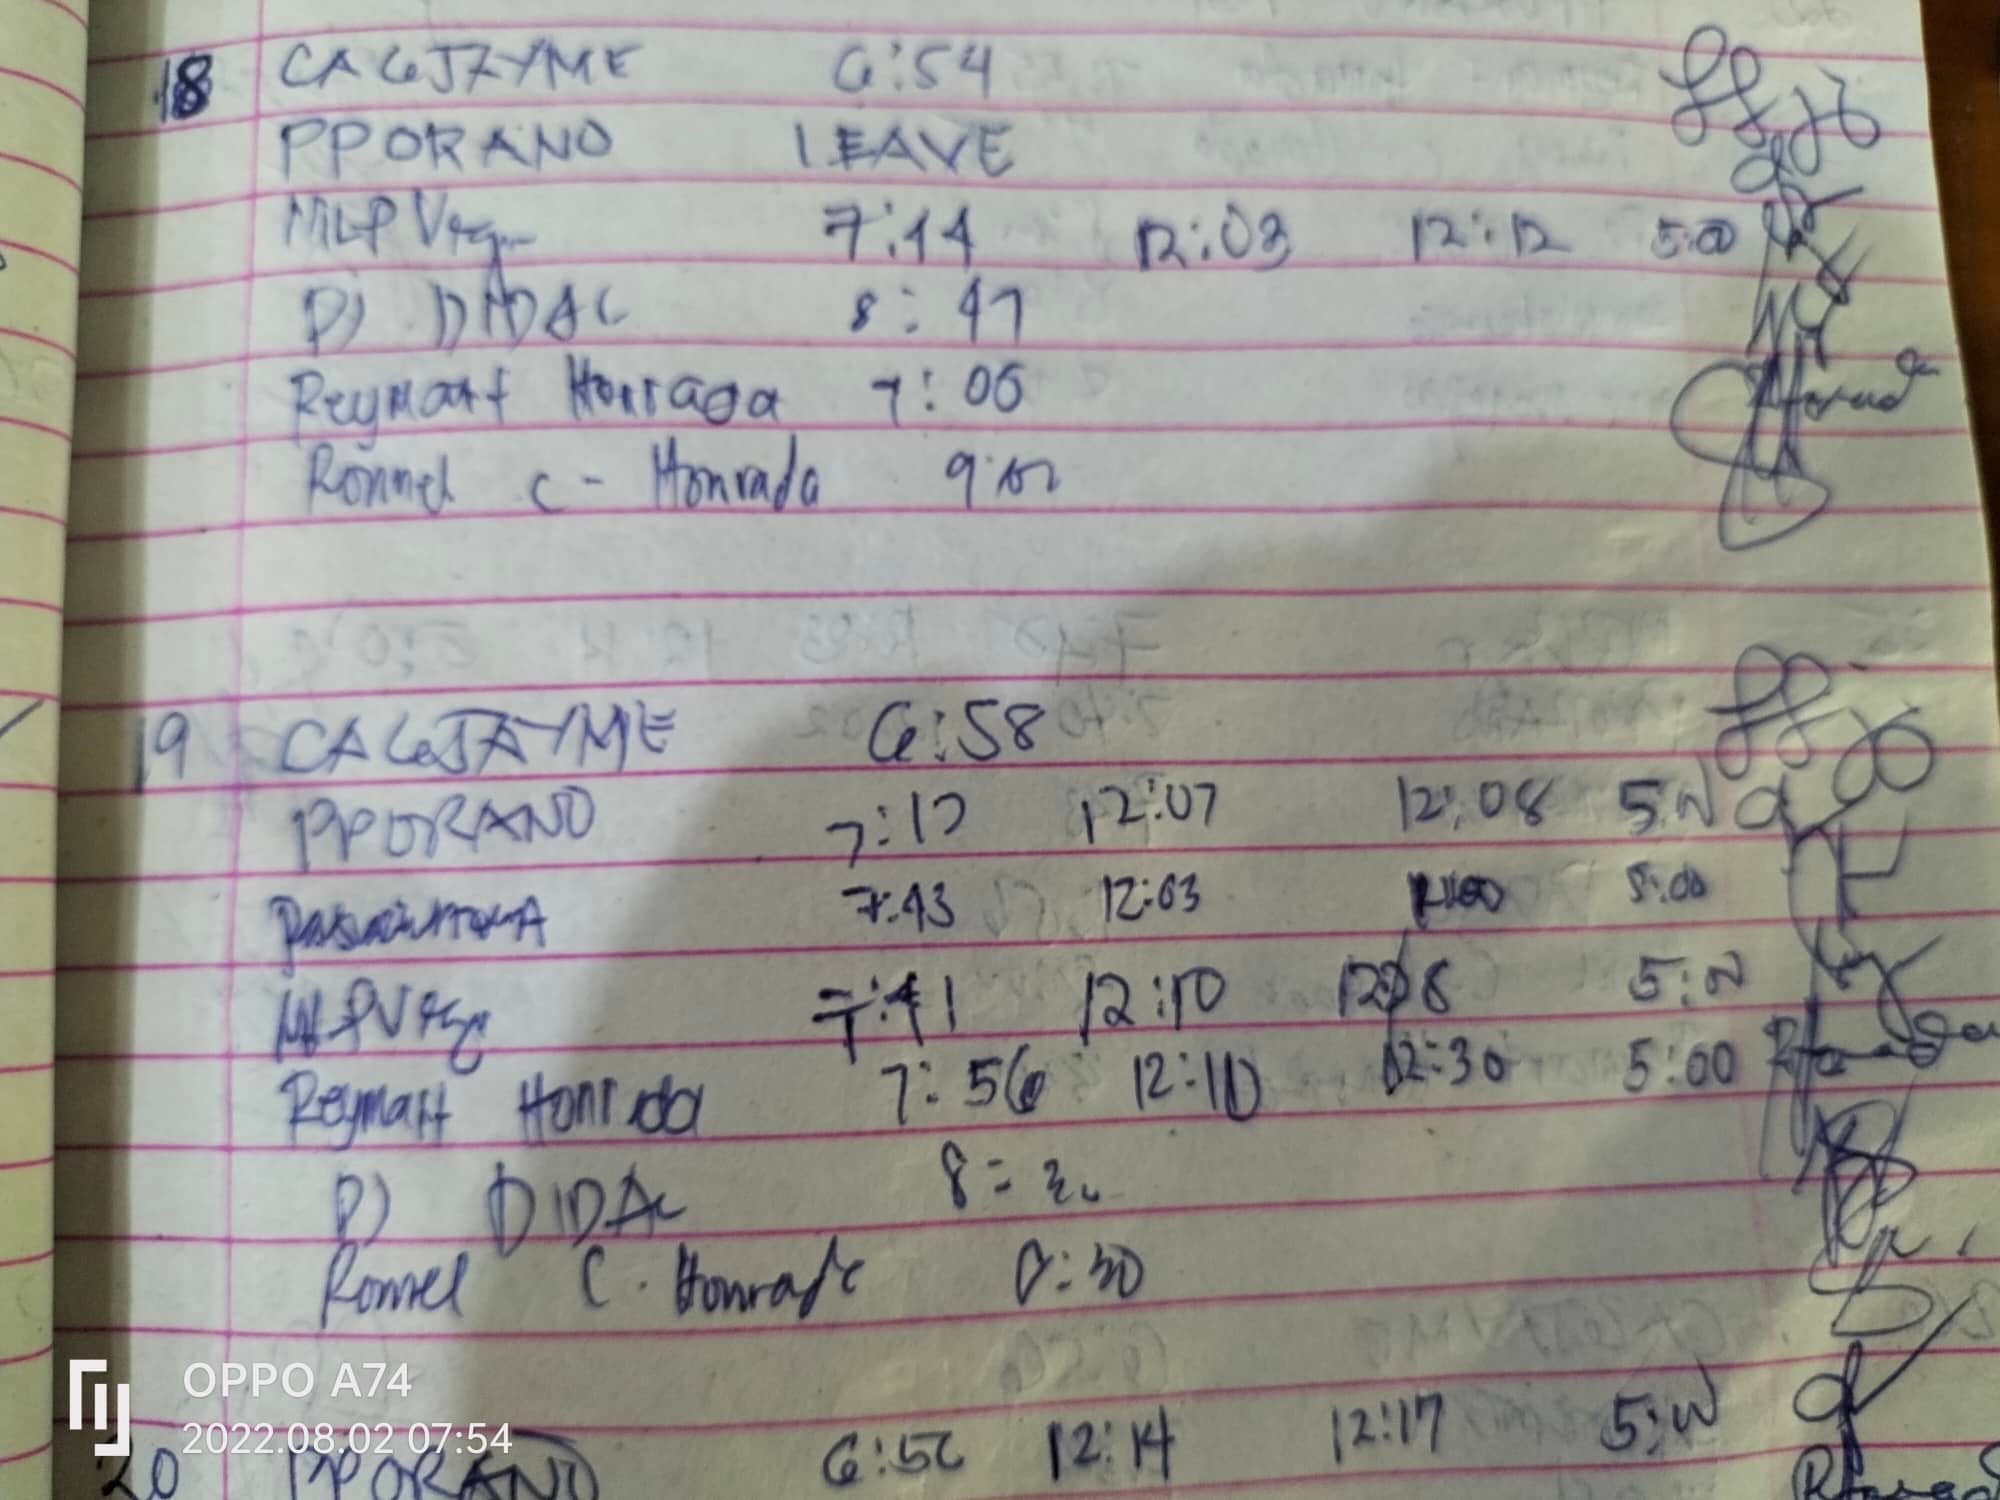 18 CAGJAYME 6:54
PPORANO LEAVE
MLPVega 7:44 12:03 12:12 5:00
PJ DIDAC 8:47
Reymart Honrada 7:06
Rommel C - Honrada 9:00
19 CAGJAYME 6:58
PPORANO 7:17 12:07 12:08 5:00
7:43 12:03 5:00
MLPVega 7:41 12:10 5:00
Reymart Honrada 7:56 12:10 12:30 5:00
PJ DIDAC
Rommel C. Honrada
OPPO A74
2022.08.02 07:54
20 PPORANO 6:56 12:14 12:17 5:00